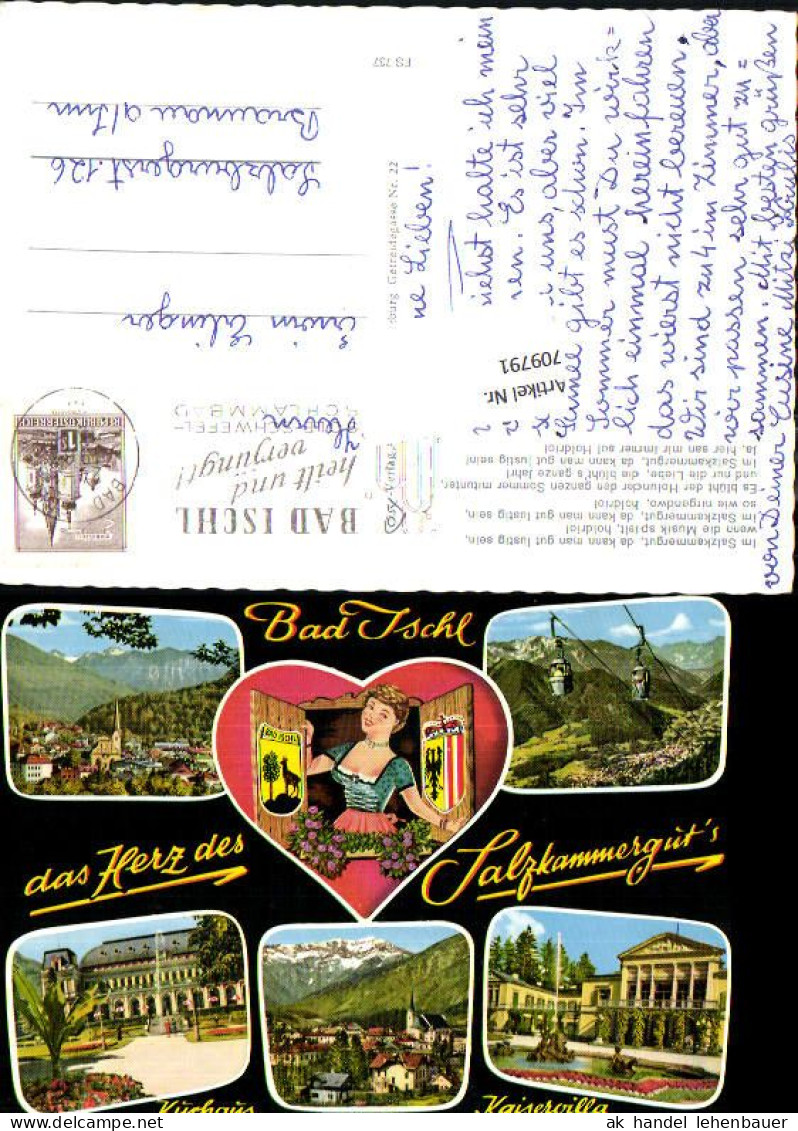 FS 757
Braunau a/Inn
Salzburgerst. 126
Erwin Erlinger
Herrn
burg, Getreidegasse Nr. 22
Cosy-Verlag
REPUBLIK ÖSTERREICH
BAD
BAD ISCHL
heilt und
verjüngt!
SCHWEFEL-
SCHLAMMBAD
Artikel Nr.
709791
ne Lieben!
halte ich mein
ren. Es ist sehr
uns, aber viel
Schnee gibt es schon. Im
Sommer must Du wirk=
lich einmal hereinfahren
das wierst nicht bereuen.
Wir sind zu 4 im Zimmer, aber
wir passen sehr gut zu=
sammen. Mit besten grüßen
von Deiner Cusine Mitzi
Im Salzkammergut, da kann man gut lustig sein,
wenn die Musik spielt, holdrio!
Im Salzkammergut, da kann man gut lustig sein,
so wie nirgendwo, holdrio!
Es blüht der Holunder den ganzen Sommer mitunter,
und nur die Liebe, die blüht's ganze Jahr!
Im Salzkammergut, da kann man gut lustig sein!
Ja, hier san mir immer auf Holdrio!
Bad Ischl
BAD ISCHL
das Herz des
Salzkammergut's
Kurhaus
Kaiservilla
ak handel lehenbauer